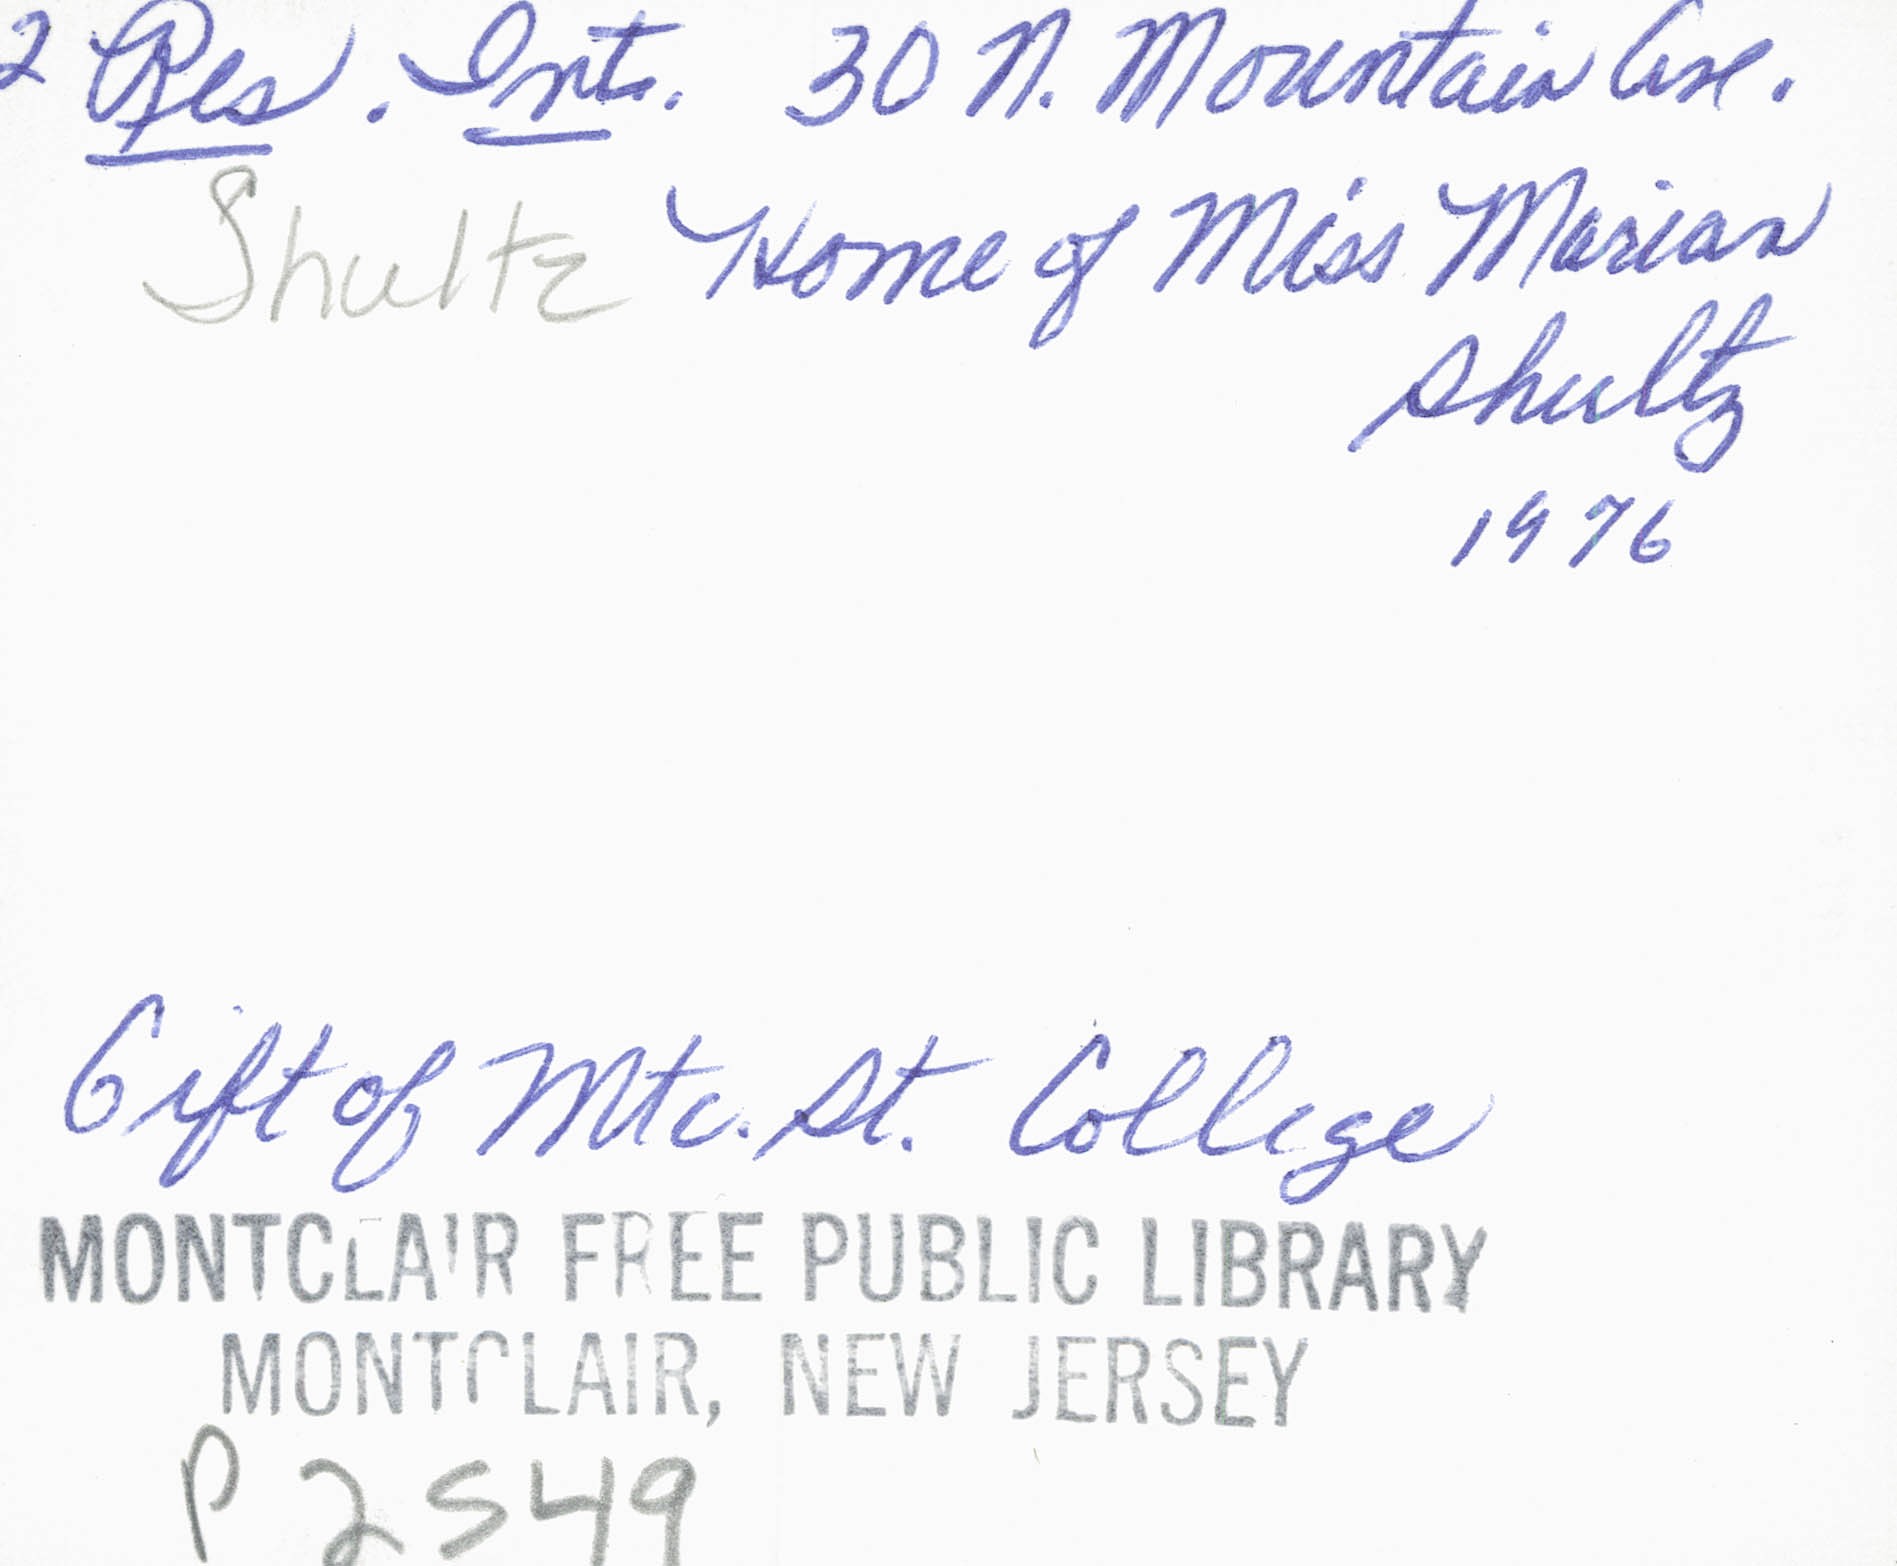 2 Res. Ints. 30 N. Mountain Ave.
Shultz Home of Miss Marian
Shultz
1976
Gift of Mtc. St. College
MONTCLAIR FREE PUBLIC LIBRARY
MONTCLAIR, NEW JERSEY
P2549